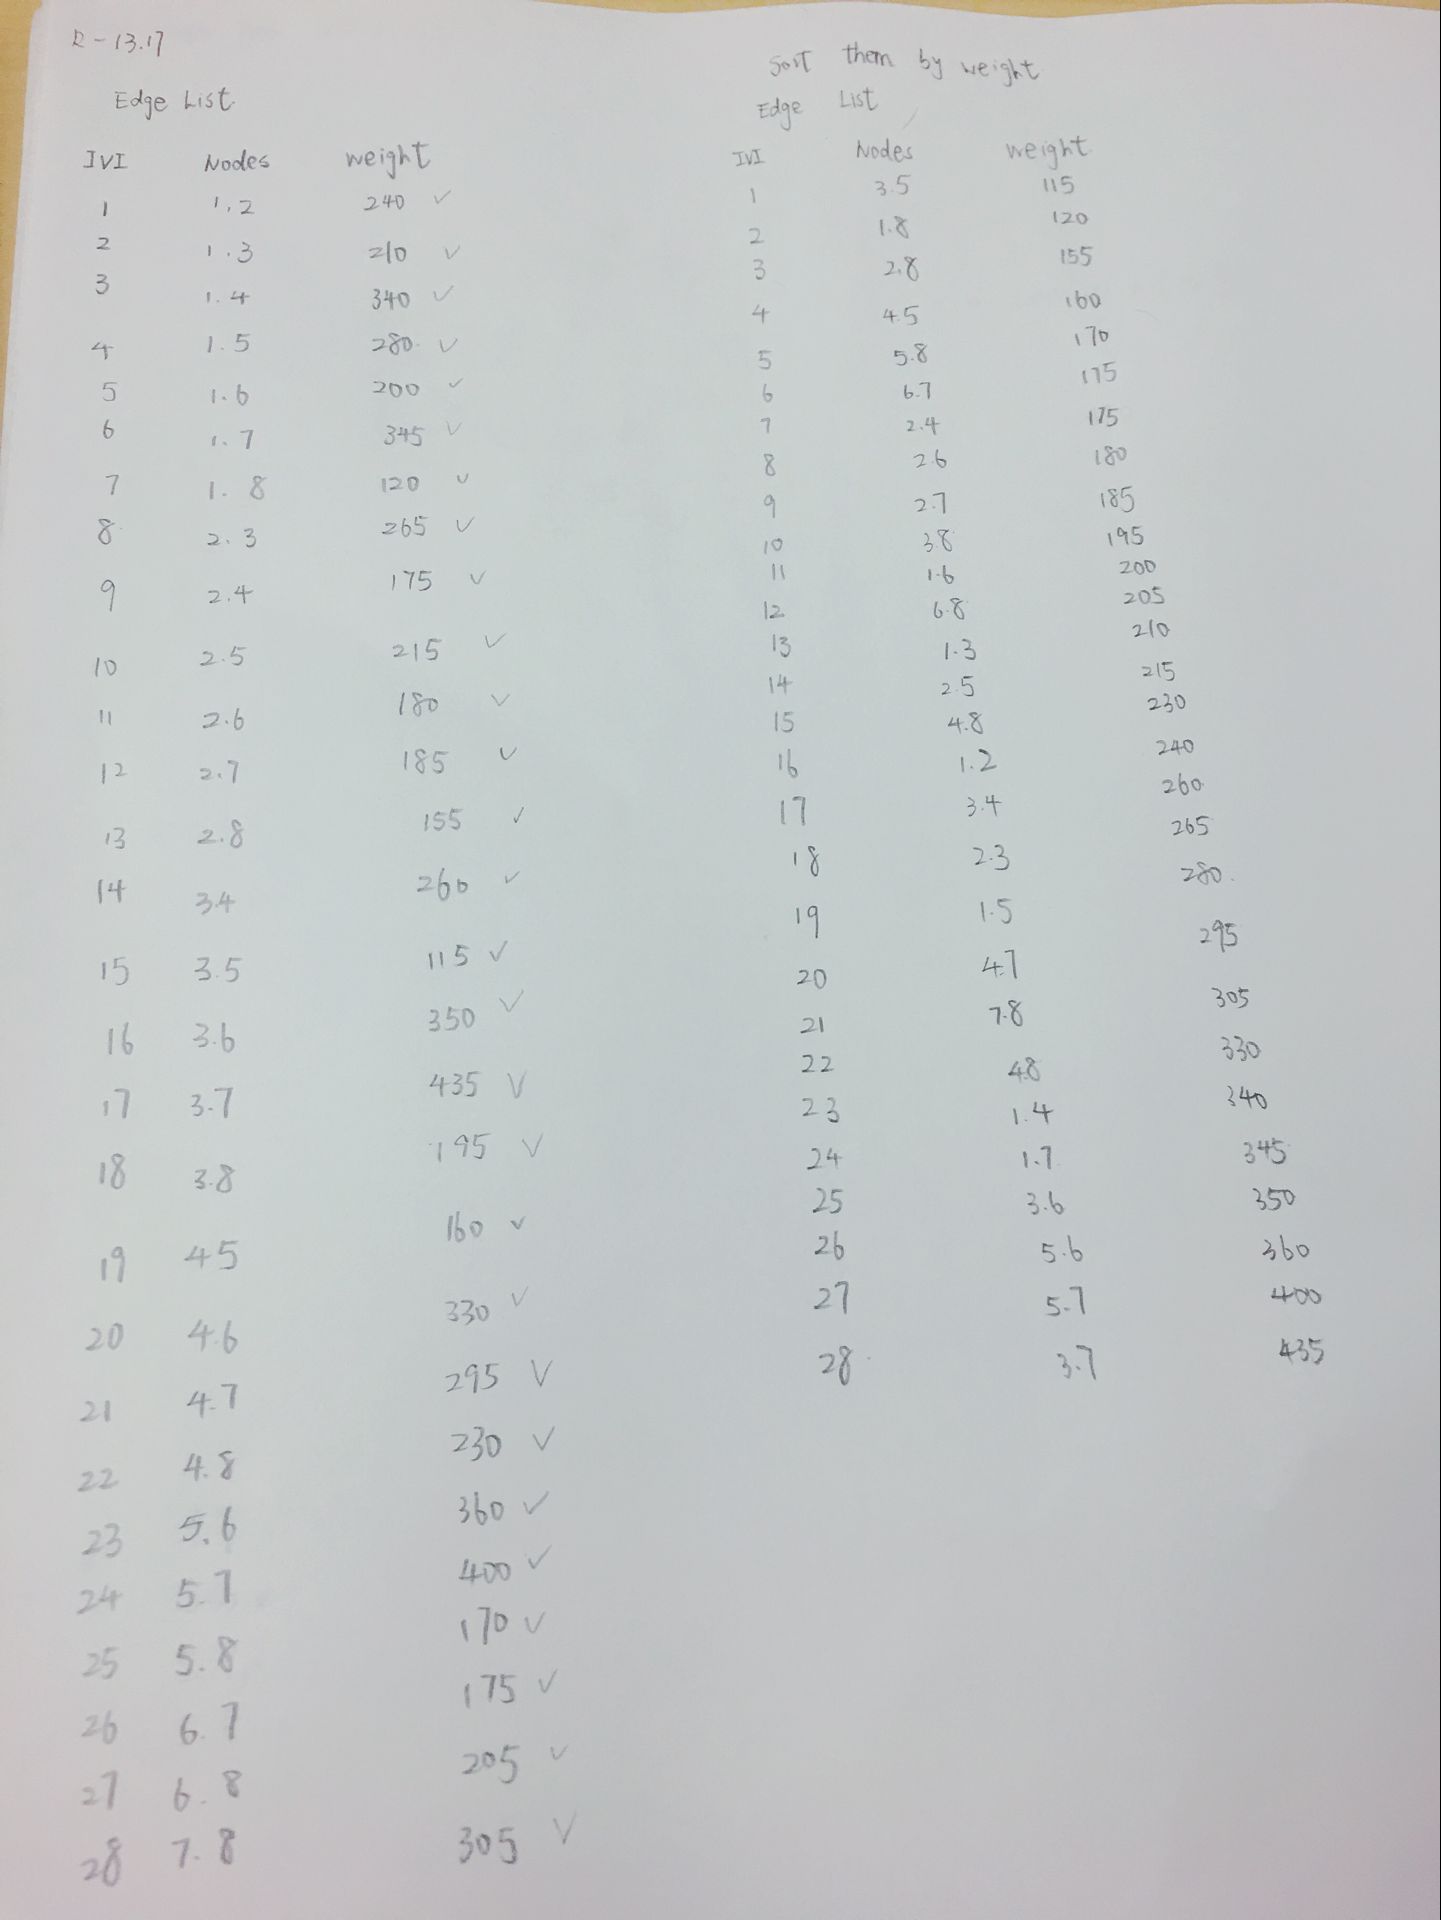 R-13.17
Edge List
|V| Nodes weight
1 1.2 240 ✓
2 1.3 210 ✓
3 1.4 340 ✓
4 1.5 280 ✓
5 1.6 200 ✓
6 1.7 345 ✓
7 1.8 120 ✓
8 2.3 265 ✓
9 2.4 175 ✓
10 2.5 215 ✓
11 2.6 180 ✓
12 2.7 185 ✓
13 2.8 155 ✓
14 3.4 260 ✓
15 3.5 115 ✓
16 3.6 350 ✓
17 3.7 435 ✓
18 3.8 195 ✓
19 4.5 160 ✓
20 4.6 330 ✓
21 4.7 295 ✓
22 4.8 230 ✓
23 5.6 360 ✓
24 5.7 400 ✓
25 5.8 170 ✓
26 6.7 175 ✓
27 6.8 205 ✓
28 7.8 305 ✓
Sort them by weight
Edge List
|V| Nodes weight
1 3.5 115
2 1.8 120
3 2.8 155
4 4.5 160
5 5.8 170
6 6.7 175
7 2.4 175
8 2.6 180
9 2.7 185
10 3.8 195
11 1.6 200
12 6.8 205
13 1.3 210
14 2.5 215
15 4.8 230
16 1.2 240
17 3.4 260
18 2.3 265
19 1.5 280
20 4.7 295
21 7.8 305
22 4.8 330
23 1.4 340
24 1.7 345
25 3.6 350
26 5.6 360
27 5.7 400
28 3.7 435